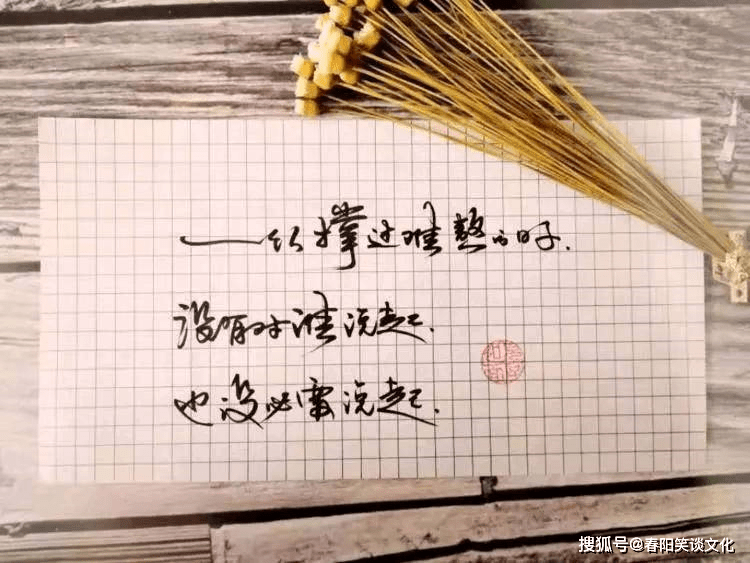 一个人撑过难熬的日子.
没有对谁说起.
也没必需说起.
搜狐号@春阳笑谈文化